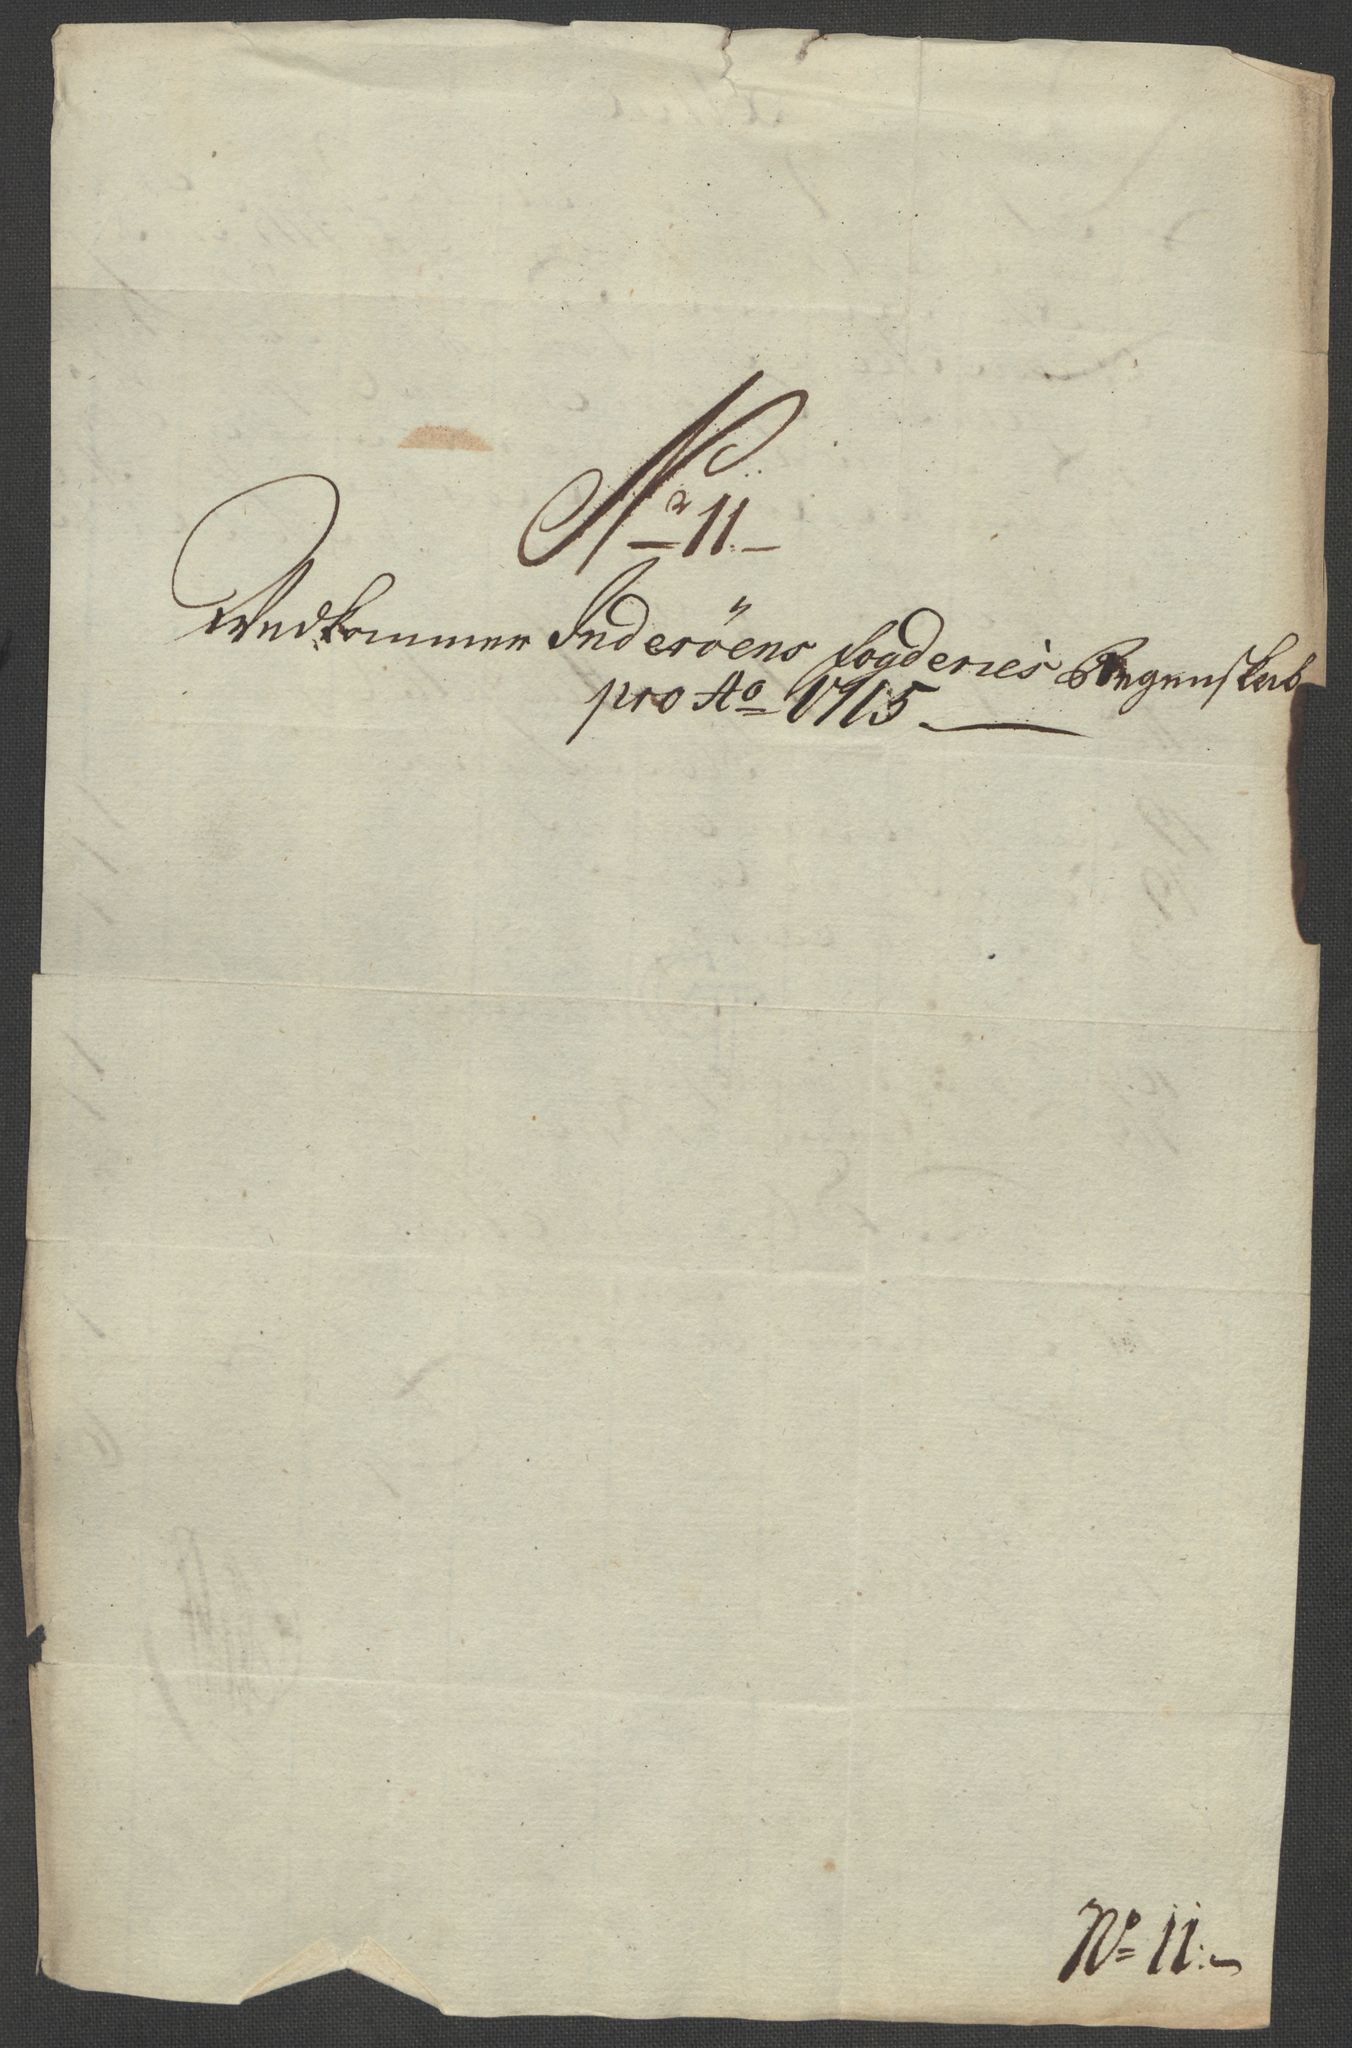 No 11.
Vedkommer Inderöens fogderies Regenskab
pro Ao 1715
No 11.